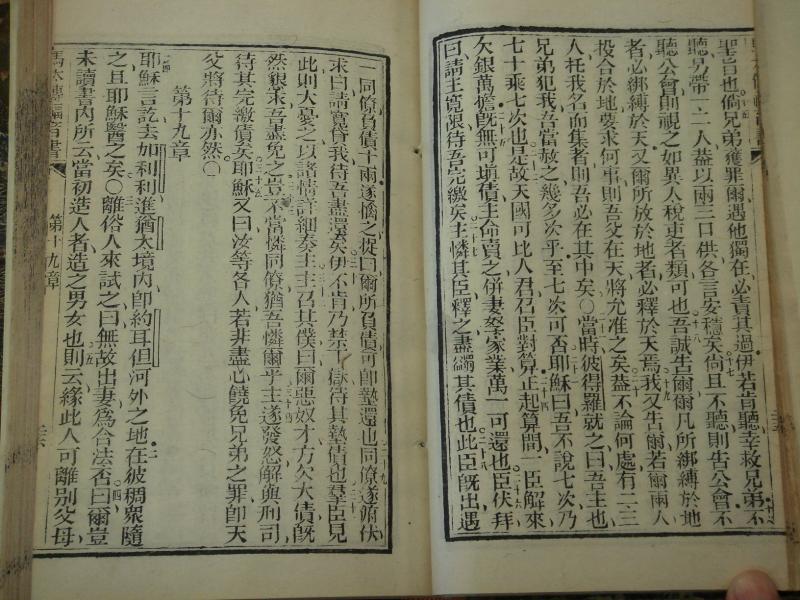 聖旨也倘兄弟獲罪爾遇他獨在必責其過伊若肯聽幸救兄弟不
聽另帶一二人葢以兩三口供各言安穩矣倘且不聽則告公會不
聽公會則視之如異人稅吏者類可也吾誠告爾爾凡所綁縛於地
者必綁縛於天又爾所放於地者必釋於天焉我又告爾若爾兩人
投合於地要求何事則吾父在天將允准之矣葢不論何處有二三
人托我名而集者則吾必在其中矣○當時彼得羅就之曰吾主也
兄弟犯我吾當赦之幾多次乎至七次可否耶穌曰吾不說七次乃
七十乘七次也是故天國可比人君召臣對算正起算間一臣解來
欠銀萬擔旣無可塡債主命賣之併妻孥家業萬一可還也臣伏拜
曰請主寬限待吾完繳矣主憐其臣釋之盡蠲其債也此臣旣出遇
一同僚負債十兩遂搊之捉曰爾所負債可卽墊還也同僚遂俯伏
求曰請寬貸我待吾盡還矣伊不肯乃禁于獄待其墊債也羣臣見
此則大憂之以諸情詳細奏主主召其僕曰爾惡奴才方欠大債旣
然懇求吾盡免之豈不當憐同僚猶吾憐爾乎主遂發怒解與刑司
待其完繳債矣耶穌又曰汝等各人若非盡心饒免兄弟之罪卽天
父將待爾亦然○
第十九章
耶穌言訖去加利利進猶太境內卽約耳但河外之地在彼稠衆隨
之且耶穌醫之矣○離俗人來試之曰無故出妻爲合法否曰爾豈
未讀書內所云當初造人者造之男女也則云緣此人可離別父母
第十九章